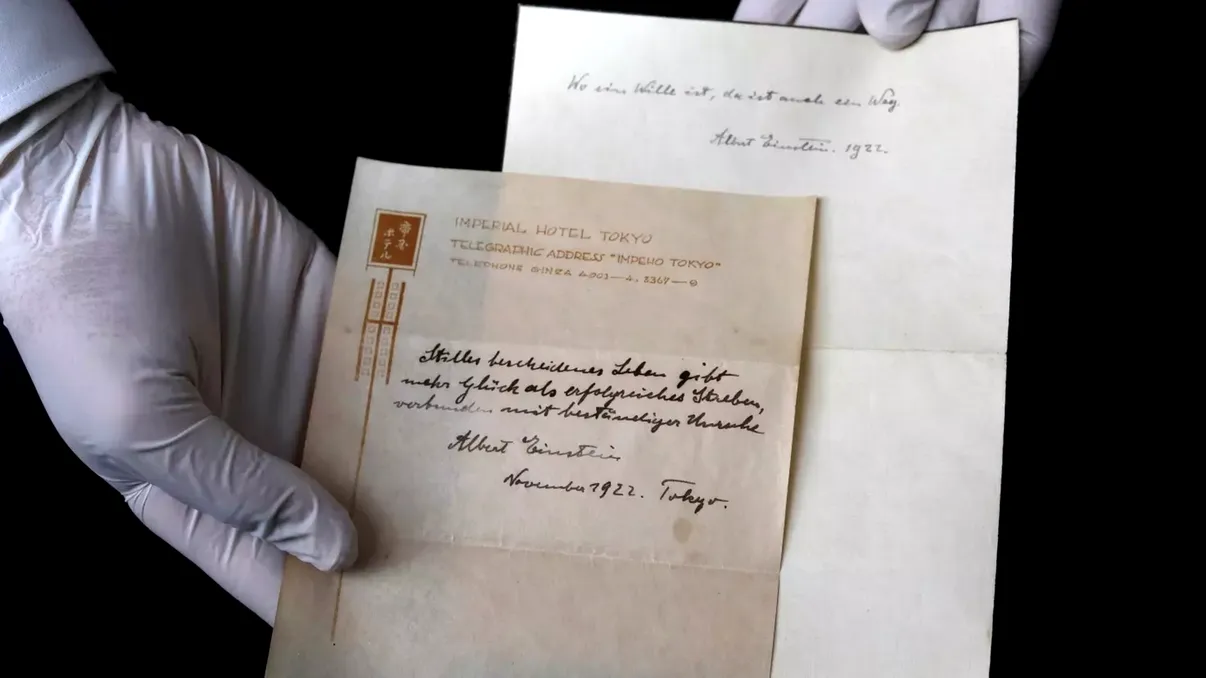 Wo ein Wille ist, da ist auch ein Weg.
Albert Einstein. 1922.
帝国
ホテル
IMPERIAL HOTEL TOKYO
TELEGRAPHIC ADDRESS "IMPEHO TOKYO"
TELEPHONE GINZA 4003—4, 3367—9
Stilles bescheidenes Leben gibt
mehr Glück als erfolgreiches Streben,
verbunden mit beständiger Unruhe
Albert Einstein
November 1922. Tokyo.